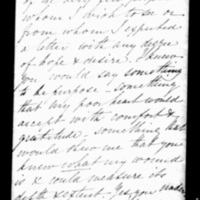 whom I wish to see or
from whom I expected
a letter with any degree
of hope & desire. I knew
you would say something
to the purpose – something
that my poor heart would
accept with comfort &
gratitude. something that
would shew me that you
knew what my wound
is & could measure its
depth & extent. Yes you